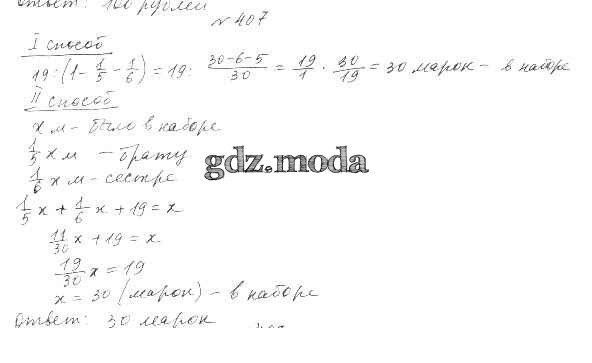 Ответ: 100 рублей
№ 407
I способ
19 : (1 - 1/5 - 1/6) = 19 : (30-6-5)/30 = 19/1 · 30/19 = 30 марок - в наборе
II способ
х м - было в наборе
1/5 х м - брату
gdz.moda
1/6 х м - сестре
1/5 х + 1/6 х + 19 = х
11/30 х + 19 = х
19/30 х = 19
х = 30 (марок) - в наборе
Ответ: 30 марок